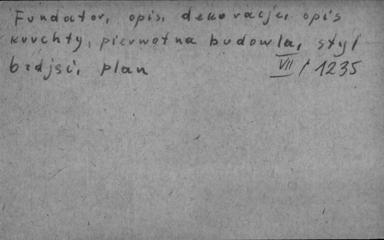 Fundator, opis, dekoracja, opis
kruchty, pierwotna budowla, styl
bzdjści, plan
VII / 1235